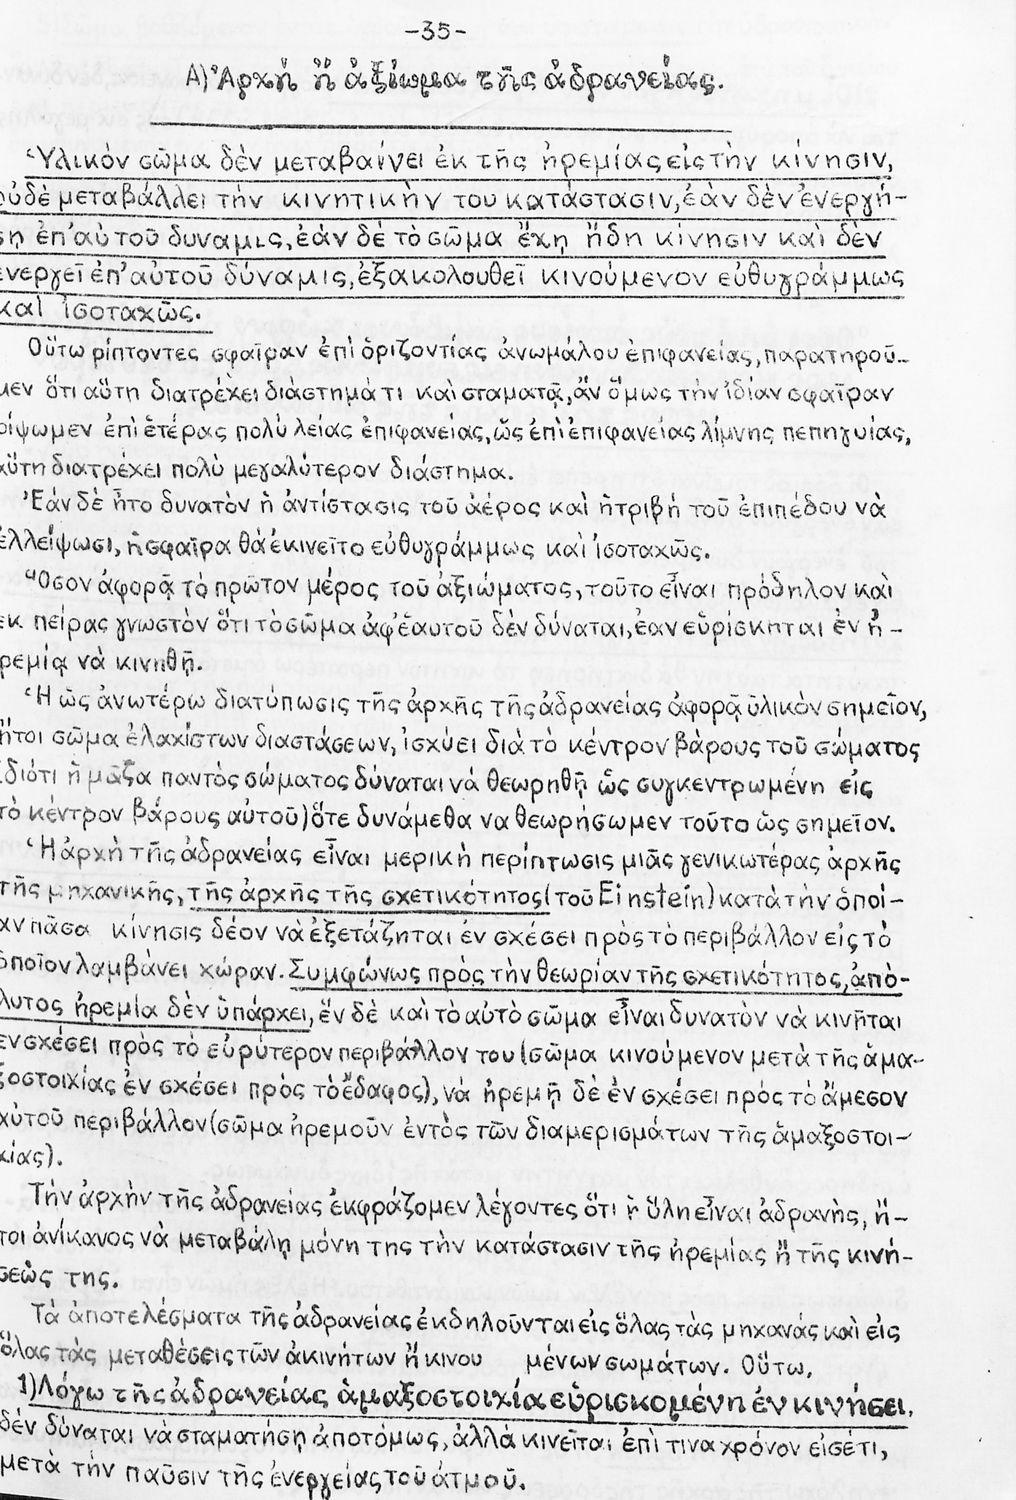 -35-
Α) Ἀρχή ἤ ἀξίωμα τῆς ἀδρανείας.
Ὑλικόν σῶμα δέν μεταβαίνει ἐκ τῆς ἠρεμίας εἰς τήν κίνησιν,
οὐδὲ μεταβάλλει τήν κινητικὴν του κατάστασιν, ἐὰν δὲν ἐνεργή-
σῃ ἐπ' αὐτοῦ δυναμις, ἐάν δὲ τὸ σῶμα ἔχῃ ἤδη κίνησιν καὶ δὲν
ἐνεργεῖ ἐπ' αὐτοῦ δύναμις, ἐξακολουθεῖ κινούμενον εὐθυγράμμως
καὶ ἰσοταχῶς.
Οὕτω ρίπτοντες σφαῖραν ἐπὶ ὁριζοντίας ἀνωμάλου ἐπιφανείας, παρατηροῦ-
μεν ὅτι αὕτη διατρέχει διάστημά τι καὶ σταματᾷ, ἄν ὅμως τὴν ἰδίαν σφαῖραν
ρίψωμεν ἐπὶ ἑτέρας πολύ λείας ἐπιφανείας, ὡς ἐπὶ ἐπιφανείας λίμνης πεπηγυίας,
αὕτη διατρέχει πολὺ μεγαλύτερον διάστημα.
Ἐάν δὲ ἦτο δυνατὸν ἡ ἀντίστασις τοῦ ἀέρος καὶ ἡ τριβή τοῦ ἐπιπέδου νὰ
ἐλλείψωσι, ἡ σφαῖρα θὰ ἐκινεῖτο εὐθυγράμμως καὶ ἰσοταχῶς.
Ὅσον ἀφορᾷ τὸ πρῶτον μέρος τοῦ ἀξιώματος, τοῦτο εἶναι πρόδηλον καὶ
ἐκ πείρας γνωστὸν ὅτι τὸ σῶμα ἀφ' ἑαυτοῦ δὲν δύναται, ἐαν εὑρίσκηται ἐν ἠ-
ρεμίᾳ νὰ κινηθῇ.
Ἡ ὡς ἀνωτέρω διατύπωσις τῆς ἀρχῆς τῆς ἀδρανείας ἀφορᾷ ὑλικὸν σημεῖον,
ἤτοι σῶμα ἐλαχίστων διαστάσεων, ἰσχύει διὰ τὸ κέντρον βάρους τοῦ σώματος
(διότι ἡ μᾶζα παντὸς σώματος δύναται νὰ θεωρηθῇ ὡς συγκεντρωμένη εἰς
τὸ κέντρον βάρους αὐτοῦ) ὅτε δυνάμεθα να θεωρήσωμεν τοῦτο ὡς σημεῖον.
Ἡ ἀρχὴ τῆς ἀδρανείας εἶναι μερικὴ περίπτωσις μιᾶς γενικωτέρας ἀρχῆς
τῆς μηχανικῆς, τῆς ἀρχῆς τῆς σχετικότητος (τοῦ Einstein) κατὰ τὴν ὁποί-
αν πᾶσα κίνησις δέον νὰ ἐξετάζηται ἐν σχέσει πρὸς τὸ περιβάλλον εἰς τὸ
ὁποῖον λαμβάνει χώραν. Συμφώνως πρὸς τὴν θεωρίαν τῆς σχετικότητος, ἀπό-
λυτος ἠρεμία δὲν ὑπάρχει, ἕν δὲ καὶ τὸ αὐτὸ σῶμα εἶναι δυνατὸν νὰ κινῆται
ἐν σχέσει πρὸς τὸ εὐρύτερον περιβάλλον του (σῶμα κινούμενον μετὰ τῆς ἁμα-
ξοστοιχίας ἐν σχέσει πρὸς τὸ ἔδαφος), νὰ ἠρεμῇ δὲ ἐν σχέσει πρὸς τὸ ἄμεσον
αὐτοῦ περιβάλλον (σῶμα ἠρεμοῦν ἐντὸς τῶν διαμερισμάτων τῆς ἁμαξοστοι-
χίας).
Τήν ἀρχήν τῆς ἀδρανείας ἐκφράζομεν λέγοντες ὅτι ἡ ὕλη εἶναι ἀδρανὴς, ἤ-
τοι ἀνίκανος νὰ μεταβάλῃ μόνη της τὴν κατάστασιν τῆς ἠρεμίας ἤ τῆς κινή-
σεώς της.
Τὰ ἀποτελέσματα τῆς ἀδρανείας ἐκδηλοῦνται εἰς ὅλας τὰς μηχανάς καὶ εἰς
ὅλας τὰς μεταθέσεις τῶν ἀκινήτων ἤ κινου μένων σωμάτων. Οὕτω,
1) Λόγω τῆς ἀδρανείας ἁμαξοστοιχία εὑρισκομένη ἐν κινήσει,
δέν δύναται νὰ σταματήσῃ ἀποτόμως, ἀλλὰ κινεῖται ἐπὶ τινα χρόνον εἰσέτι,
μετὰ τὴν παῦσιν τῆς ἐνεργείας τοῦ ἀτμοῦ.